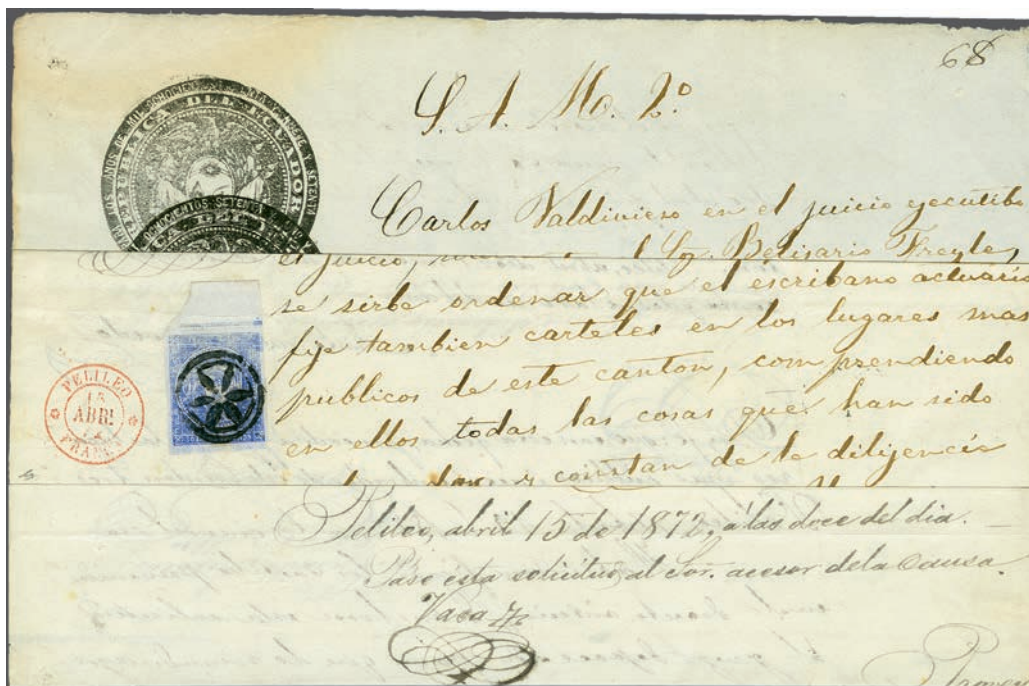 68
S. A. M. 2º
REPUBLICA DEL ECUADOR
AÑOS DE MIL OCHOCIENTOS Y SETENTA
OCHOCIENTOS SETENTA
Carlos Valdivieso en el juicio ejecutibo
el juicio, Belisario Freyle,
se sirbe ordenar que el escribano actuario
fije tambien carteles en los lugares mas
publicos de este canton, comprendiendo
en ellos todas las cosas que han sido
y constan de la dilijencia
PELILEO
15
ABR.
FRANCA
Pelileo, abril 15 de 1872, á las doce del dia.
Pase esta solicitud al Sor. acesor de la causa.
Vaca